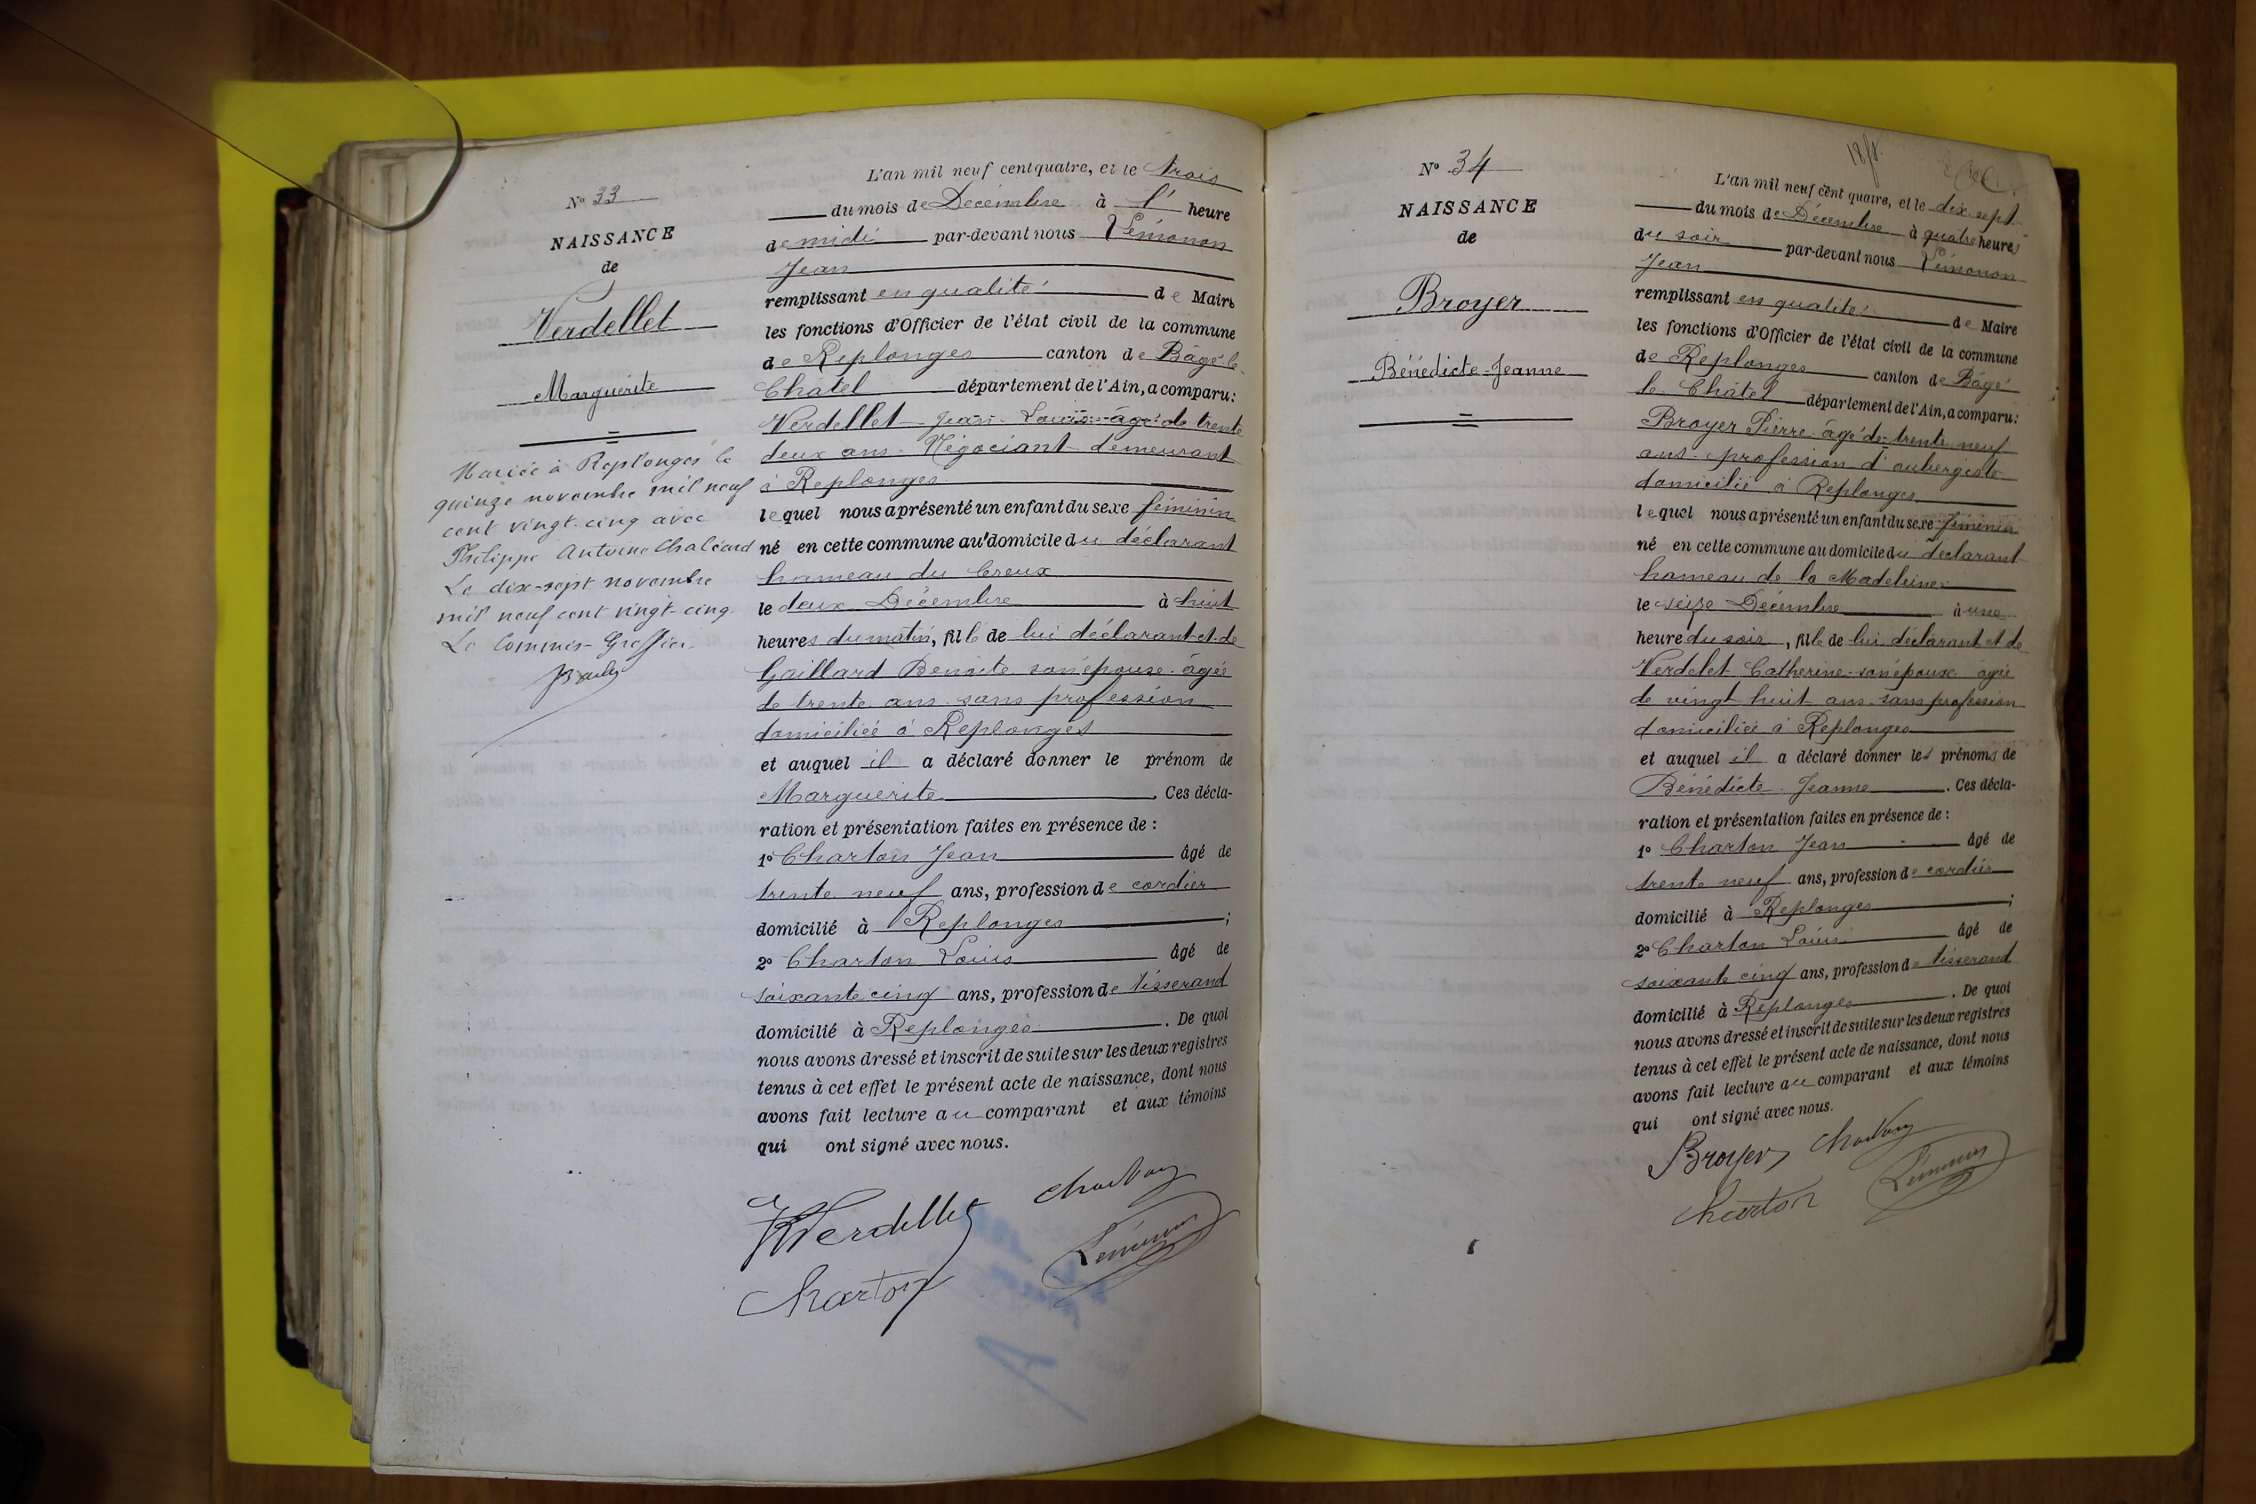 N° 33
NAISSANCE
de
Verdellet
Marguerite
Mariée à Replonges le
quinze novembre mil neuf
cent vingt-cinq avec
Philippe Antoine Chaléard
Le dix-sept novembre
mil neuf cent vingt-cinq
Le Commis-Greffier
L'an mil neuf cent quatre, et le trois
du mois de Décembre à l' heure
de midi par-devant nous Lémonon
Jean
remplissant en qualité de Maire
les fonctions d'Officier de l'état civil de la commune
de Replonges canton de Bâgé-le-
Châtel département de l'Ain, a comparu:
Verdellet Jean-Louis âgé de trente
deux ans Négociant demeurant
à Replonges
lequel nous a présenté un enfant du sexe féminin
né en cette commune au domicile du déclarant
hameau du Creux
le deux Décembre à huit
heures du matin, fille de lui déclarant et de
Gaillard Benoite son épouse âgée
de trente ans sans profession
domiciliée à Replonges
et auquel il a déclaré donner le prénom de
Marguerite. Ces décla-
ration et présentation faites en présence de :
1° Charton Jean âgé de
trente neuf ans, profession de cordier
domicilié à Replonges ;
2° Charton Louis âgé de
soixante cinq ans, profession de tisserand
domicilié à Replonges. De quoi
nous avons dressé et inscrit de suite sur les deux registres
tenus à cet effet le présent acte de naissance, dont nous
avons fait lecture au comparant et aux témoins
qui ont signé avec nous.
Verdellet Charton
Charton Lémonon
N° 34
NAISSANCE
de
Broyer
Bénédicte-Jeanne
L'an mil neuf cent quatre, et le dix sept
du mois de Décembre à quatre heures
du soir par-devant nous Lémonon
Jean
remplissant en qualité de Maire
les fonctions d'Officier de l'état civil de la commune
de Replonges canton de Bâgé
le Châtel département de l'Ain, a comparu:
Broyer Pierre âgé de trente neuf
ans profession d'aubergiste
domicilié à Replonges
lequel nous a présenté un enfant du sexe féminin
né en cette commune au domicile du déclarant
hameau de la Madeleine
le seize Décembre à une
heure du soir, fille de lui déclarant et de
Verdelet Catherine son épouse âgée
de vingt huit ans sans profession
domiciliée à Replonges
et auquel il a déclaré donner les prénoms de
Bénédicte Jeanne. Ces décla-
ration et présentation faites en présence de :
1° Charton Jean âgé de
trente neuf ans, profession de cordier
domicilié à Replonges ;
2° Charton Louis âgé de
soixante cinq ans, profession de tisserand
domicilié à Replonges. De quoi
nous avons dressé et inscrit de suite sur les deux registres
tenus à cet effet le présent acte de naissance, dont nous
avons fait lecture au comparant et aux témoins
qui ont signé avec nous.
Broyer Charton
Charton Lémonon